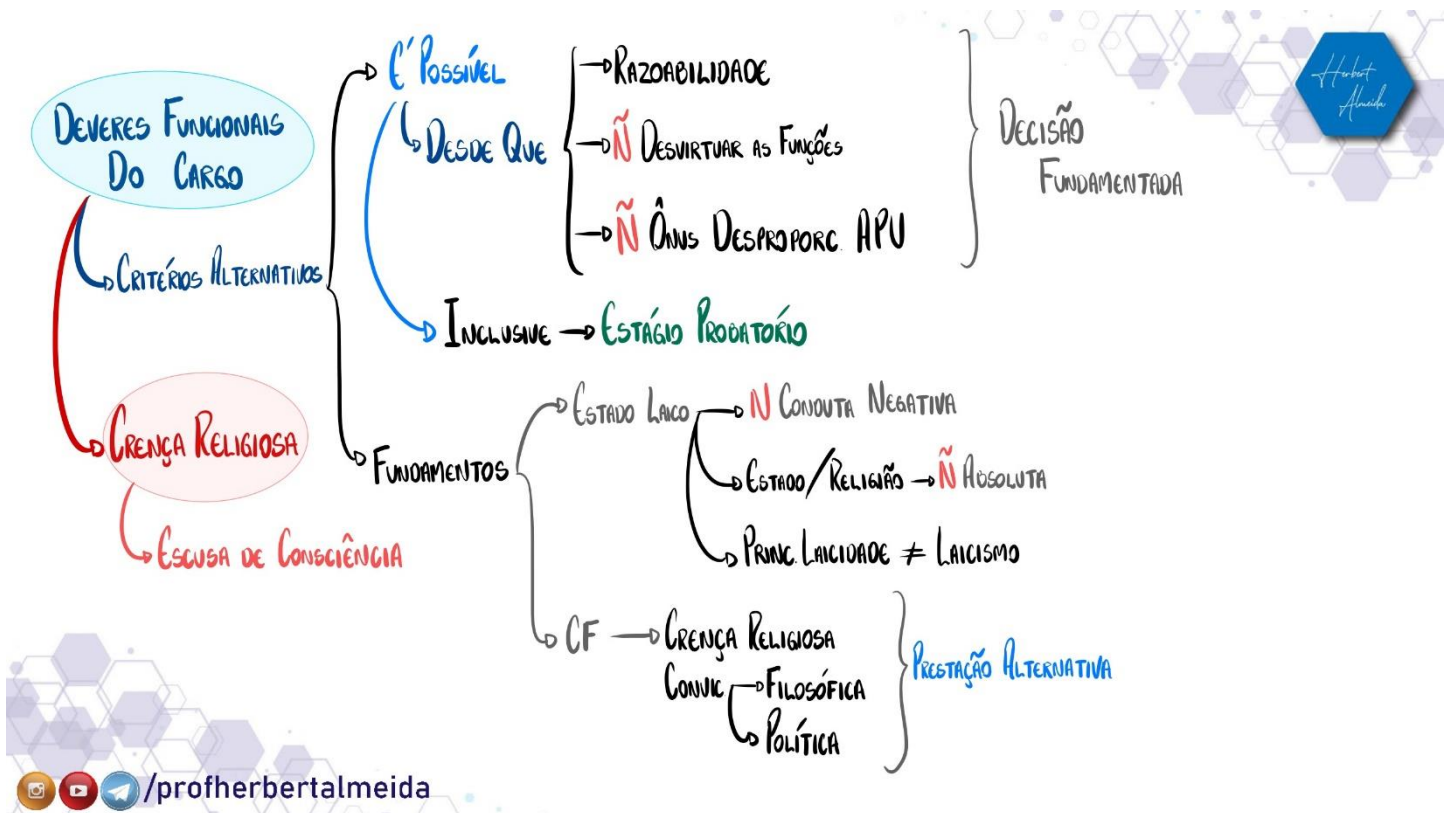 DEVERES FUNCIONAIS
DO CARGO
CRITÉRIOS ALTERNATIVOS
CRENÇA RELIGIOSA
ESCUSA DE CONSCIÊNCIA
É POSSÍVEL
DESDE QUE
RAZOABILIDADE
Ñ DESVIRTUAR AS FUNÇÕES
Ñ ÔNUS DESPROPORC. APU
DECISÃO
FUNDAMENTADA
INCLUSIVE → ESTÁGIO PROBATÓRIO
FUNDAMENTOS
ESTADO LAICO
N CONDUTA NEGATIVA
ESTADO/RELIGIÃO → Ñ ABSOLUTA
PRINC. LAICIDADE ≠ LAICISMO
CF → CRENÇA RELIGIOSA
CONVIC → FILOSÓFICA
POLÍTICA
PRESTAÇÃO ALTERNATIVA
Herbert
Almeida
/profherbertalmeida